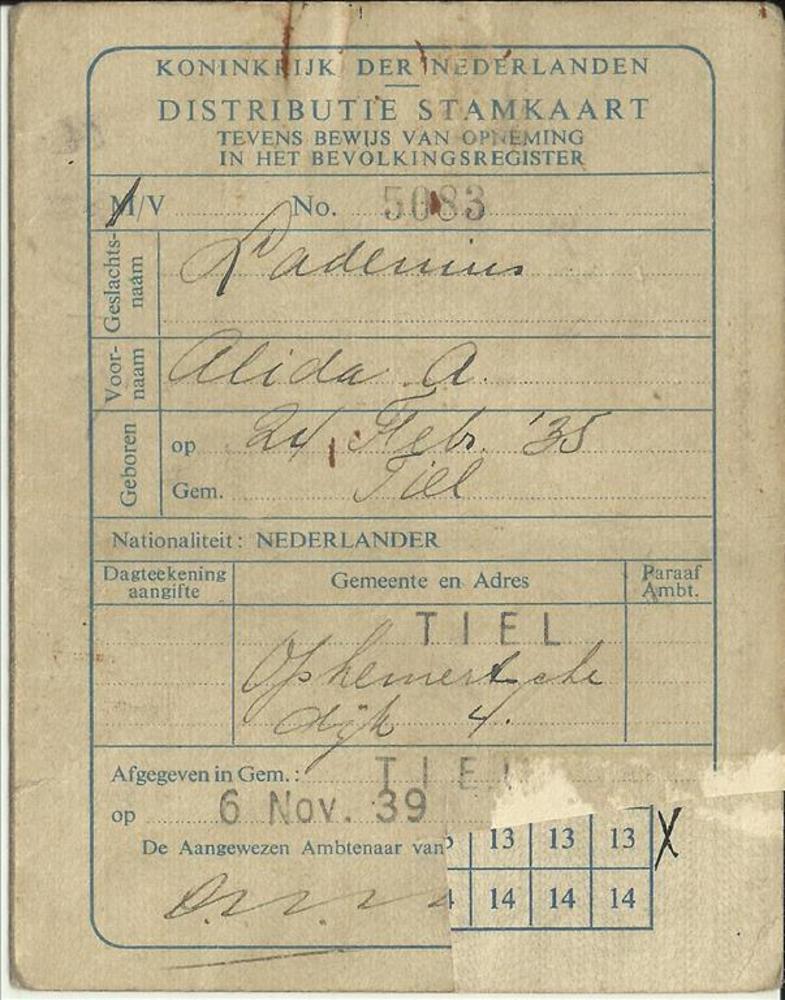 KONINKRIJK DER NEDERLANDEN
DISTRIBUTIE STAMKAART
TEVENS BEWIJS VAN OPNEMING
IN HET BEVOLKINGSREGISTER
M/V No. 5083
Geslachts-
naam
Ladenius
Voor-
naam
Alida A.
Geboren
op 24 Febr. '35
Gem. Tiel
Nationaliteit: NEDERLANDER
Dagteekening
aangifte
Gemeente en Adres
Paraaf
Ambt.
TIEL
Ophemertsche
dijk 4.
Afgegeven in Gem.: TIEL
op 6 Nov. 39
De Aangewezen Ambtenaar van
13 13 13 X
14 14 14